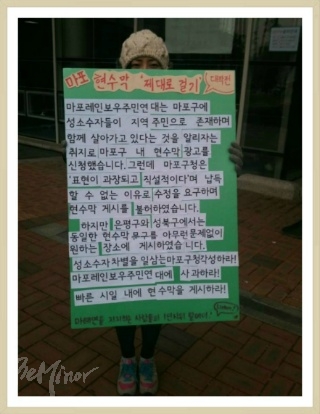 마포 현수막 '제대로 걸기' 대작전
마포레인보우주민연대는 마포구에
성소수자들이 지역 주민으로 존재하며
함께 살아가고 있다는 것을 알리자는
취지로 마포구 내 현수막 광고를
신청했습니다. 그런데 마포구청은
'표현이 과장되고 직설적이다'며 납득
할 수 없는 이유로 수정을 요구하며
현수막 게시를 불허하였습니다.
하지만 은평구와 성북구에서는
동일한 현수막 문구를 아무런 문제없이
원하는 장소에 게시하였습니다.
성소수자 차별을 일삼는 마포구청 각성하라!
마포레인보우주민연대에 사과하라!
빠른 시일 내에 현수막을 게시하라!
BeMinor